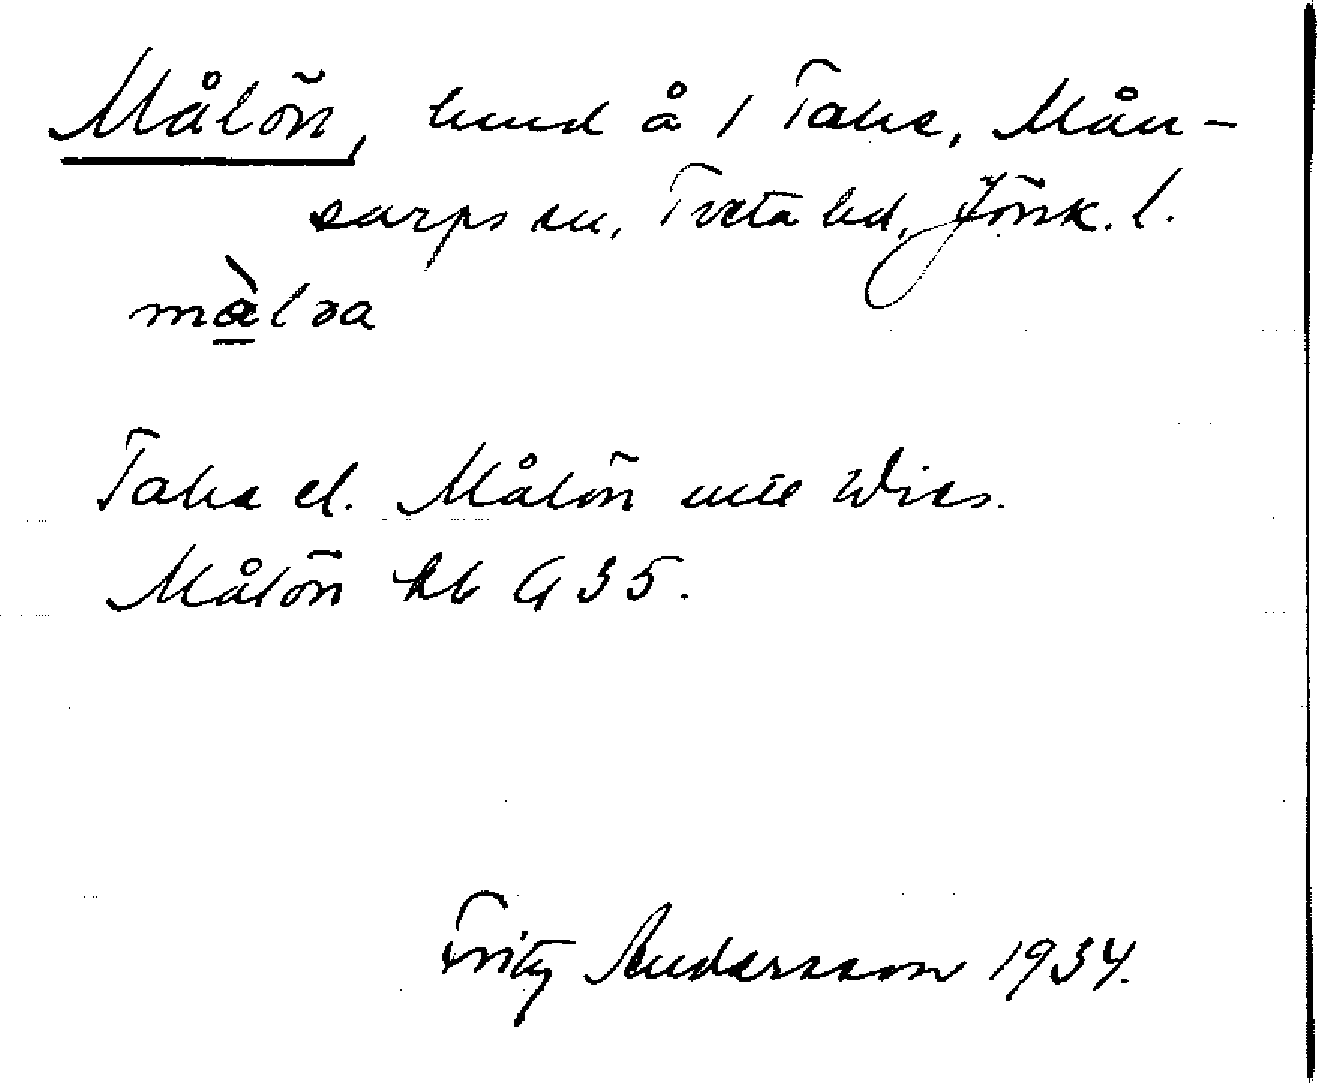 Målön, hmd å 1 Tahe, Mån-
sarps sn, Tveta hd, Jönk. l.
Tahe el. Målön Wies.
Målön kb G 35.
Fritz Andersson 1934.